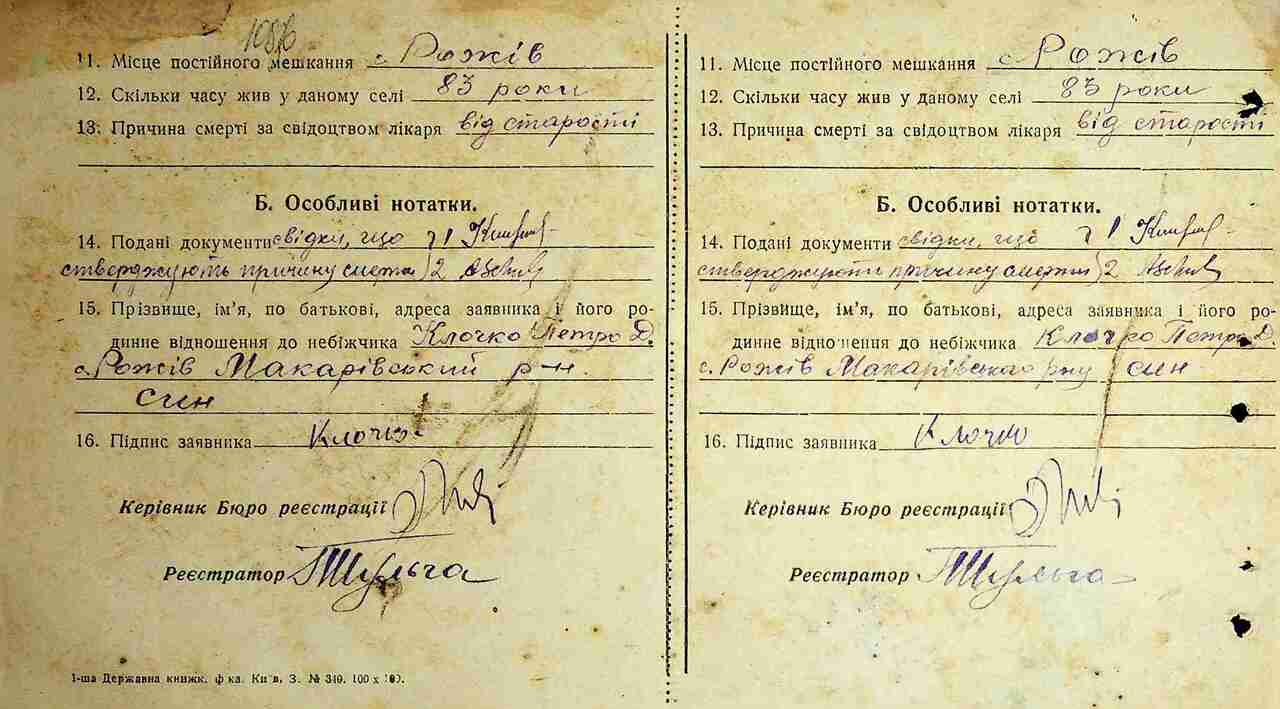 1086
11. Місце постійного мешкання с Рожів
12. Скільки часу жив у даному селі 83 роки
13. Причина смерті за свідоцтвом лікаря від старості
Б. Особливі нотатки.
14. Подані документи свідки, що 1
стверджують причину смерти 2
15. Прізвище, ім'я, по батькові, адреса заявника і його ро-
динне відношення до небіжчика Клочко Петро Д.
с. Рожів Макарівський р-н.
син
16. Підпис заявника Клочко
Керівник Бюро реєстрації
Реєстратор Шульга
1-ша Державна книжк. ф-ка. Київ, З. № 340. 100 х
11. Місце постійного мешкання с Рожів
12. Скільки часу жив у даному селі 83 роки
13. Причина смерті за свідоцтвом лікаря від старости
Б. Особливі нотатки.
14. Подані документи свідки, що 1
стверджують причину смерти 2
15. Прізвище, ім'я, по батькові, адреса заявника і його ро-
динне відношення до небіжчика Клочко Петро Д.
с. Рожів Макарівського р-ну син
16. Підпис заявника Клочко
Керівник Бюро реєстрації
Реєстратор Шульга